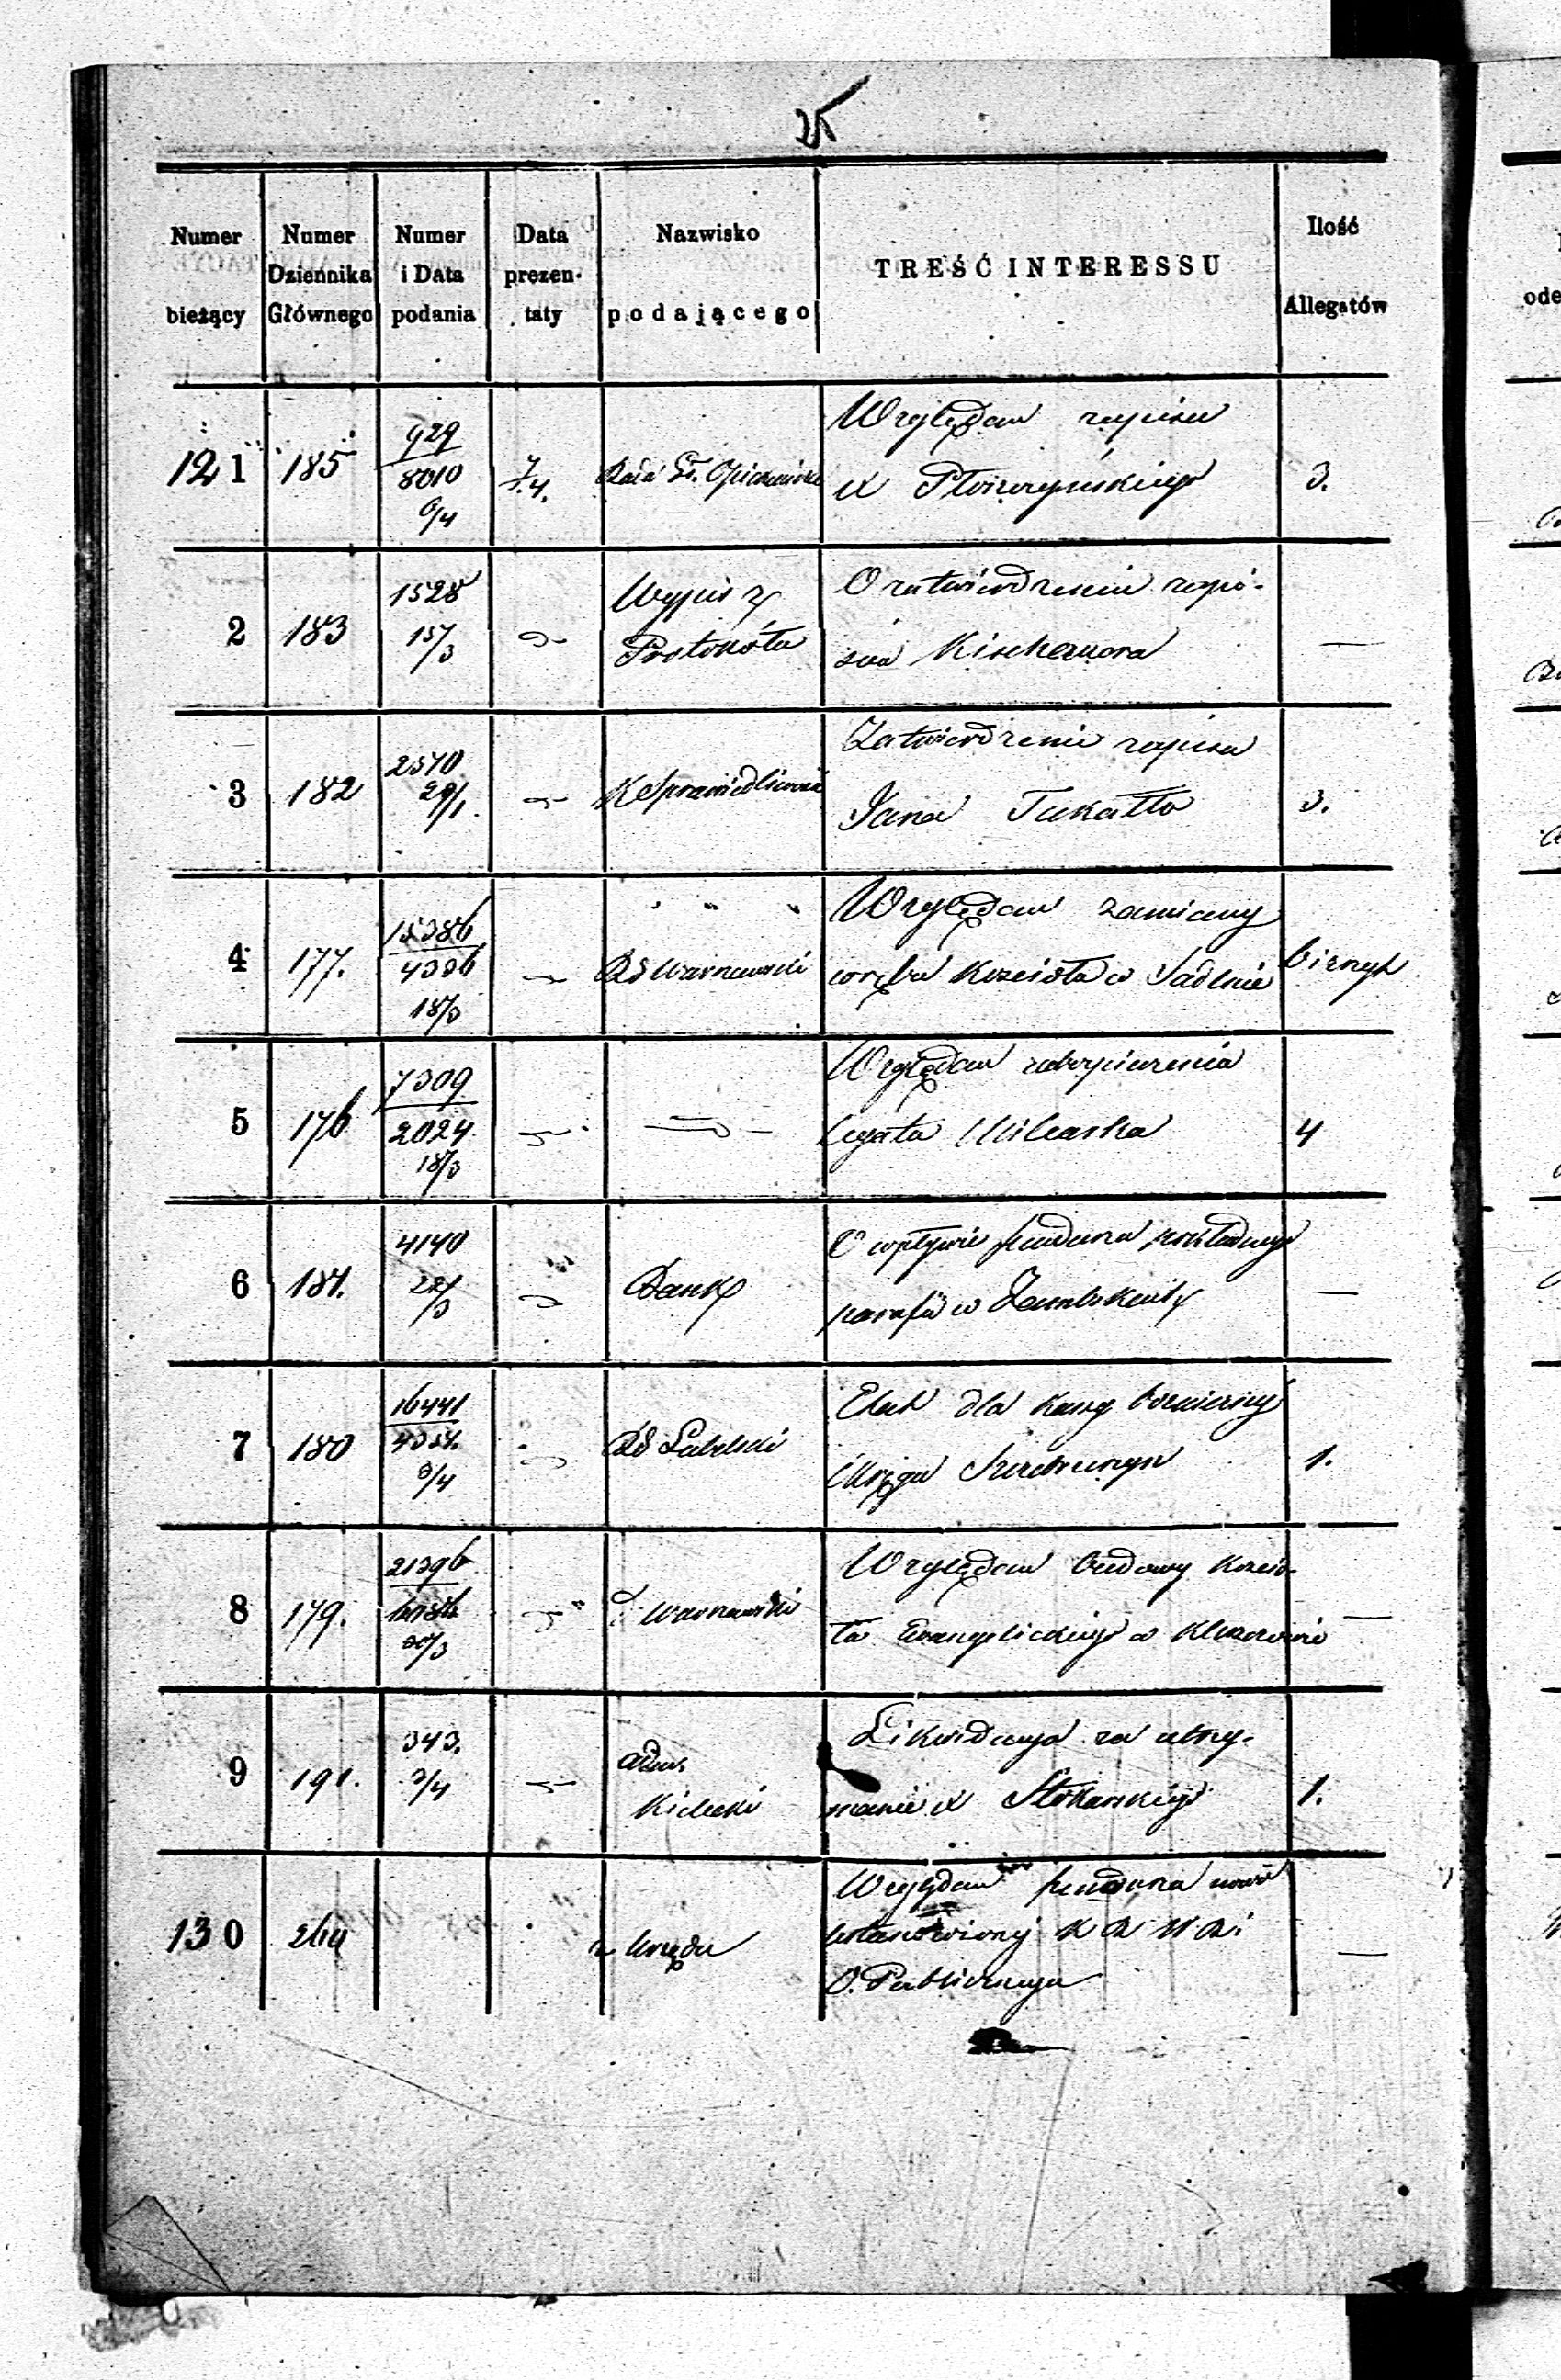 25
Numer bieżący | Numer Dziennika Głównego | Numer i Data podania | Data prezen- taty | Nazwisko podającego | TREŚĆ INTERESSU | Ilość Allegatów
121 | 185 | 929 / 8010 6/4 | 7.4. | Rada Gł. Opiekuńcza | Względem zapisu X | 3.
2 | 183 | 1528 15/3 | Wypis z Protokóła | O zatwierdzeniu zapi- su | —
3 | 182 | 2570 29/1 | K Sprawiedliwości | Zatwierdzenie zapisu Jana Tukałło | 3.
4 | 177. | 15386 / 4386 18/3 | Rd Warszawski | Względem zamiany kościoła w Sadlnie
5 | 176 | 7309 / 2024 18/3 | Względem zabezpieczenia legatu | 4
6 | 181. | 4140 22/3 | Bank | O wpływie funduszu parafii w | —
7 | 180 | 16441 / 3/4 | Rd Lubelski | Etat dla Okręgu | 1.
8 | 179. | 21396 / 30/3 | Warszawski | Względem budowy kościo- ła Ewangelickiego w | —
9 | 191. | 343. 3/4 | Adm. Kielecki | Likwidacya za utrzy- manie X Stokarskiego | 1.
130 | z Urzędu | Względem funduszu nowo ustanowionej K R W R i O. Publicznego | —